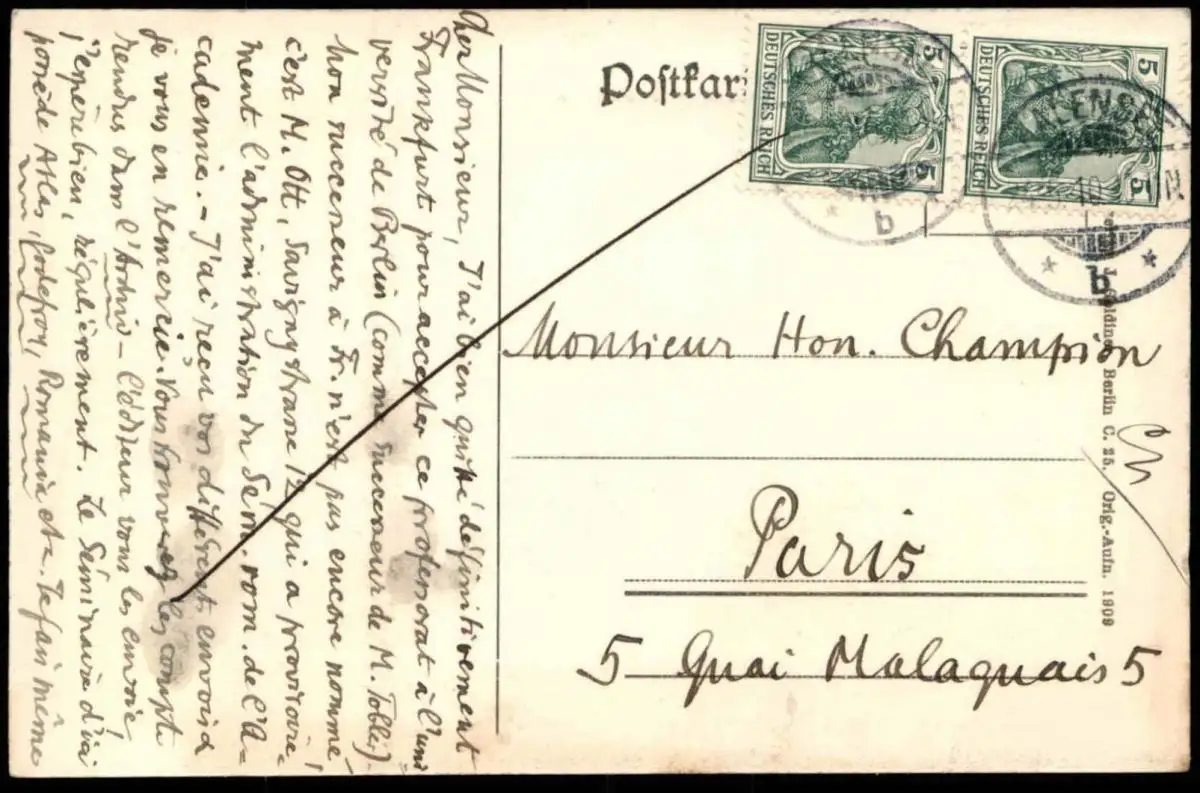 Cher Monsieur, J'ai bien quitté définitivement
Frankfurt pour accepter ce professorat à l'uni
versité de Berlin (comme successeur de M. Tobler).
Mon successeur à Fr. n'est pas encore nommé
c'est M. Ott, Savignystrasse 12 qui a provisoire-
ment l'administration du Sém. rom. de l'A-
cadémie. - J'ai reçu vos différents envois &
je vous en remercie. Vous trouverez les compt
rendus dans l'Archiv - l'éditeur vous les envoie,
j'espère bien, régulièrement. Le Séminaire d'ici
possède Atlas, Godefroy, Romania etc. Je fais même
Postkar
DEUTSCHES REICH
5
5
DEUTSCHES REICH
5
5
b
b
Monsieur Hon. Champion
Paris
5 Quai Malaquais 5
Berlin C. 25. Orig.-Aufn. 1909